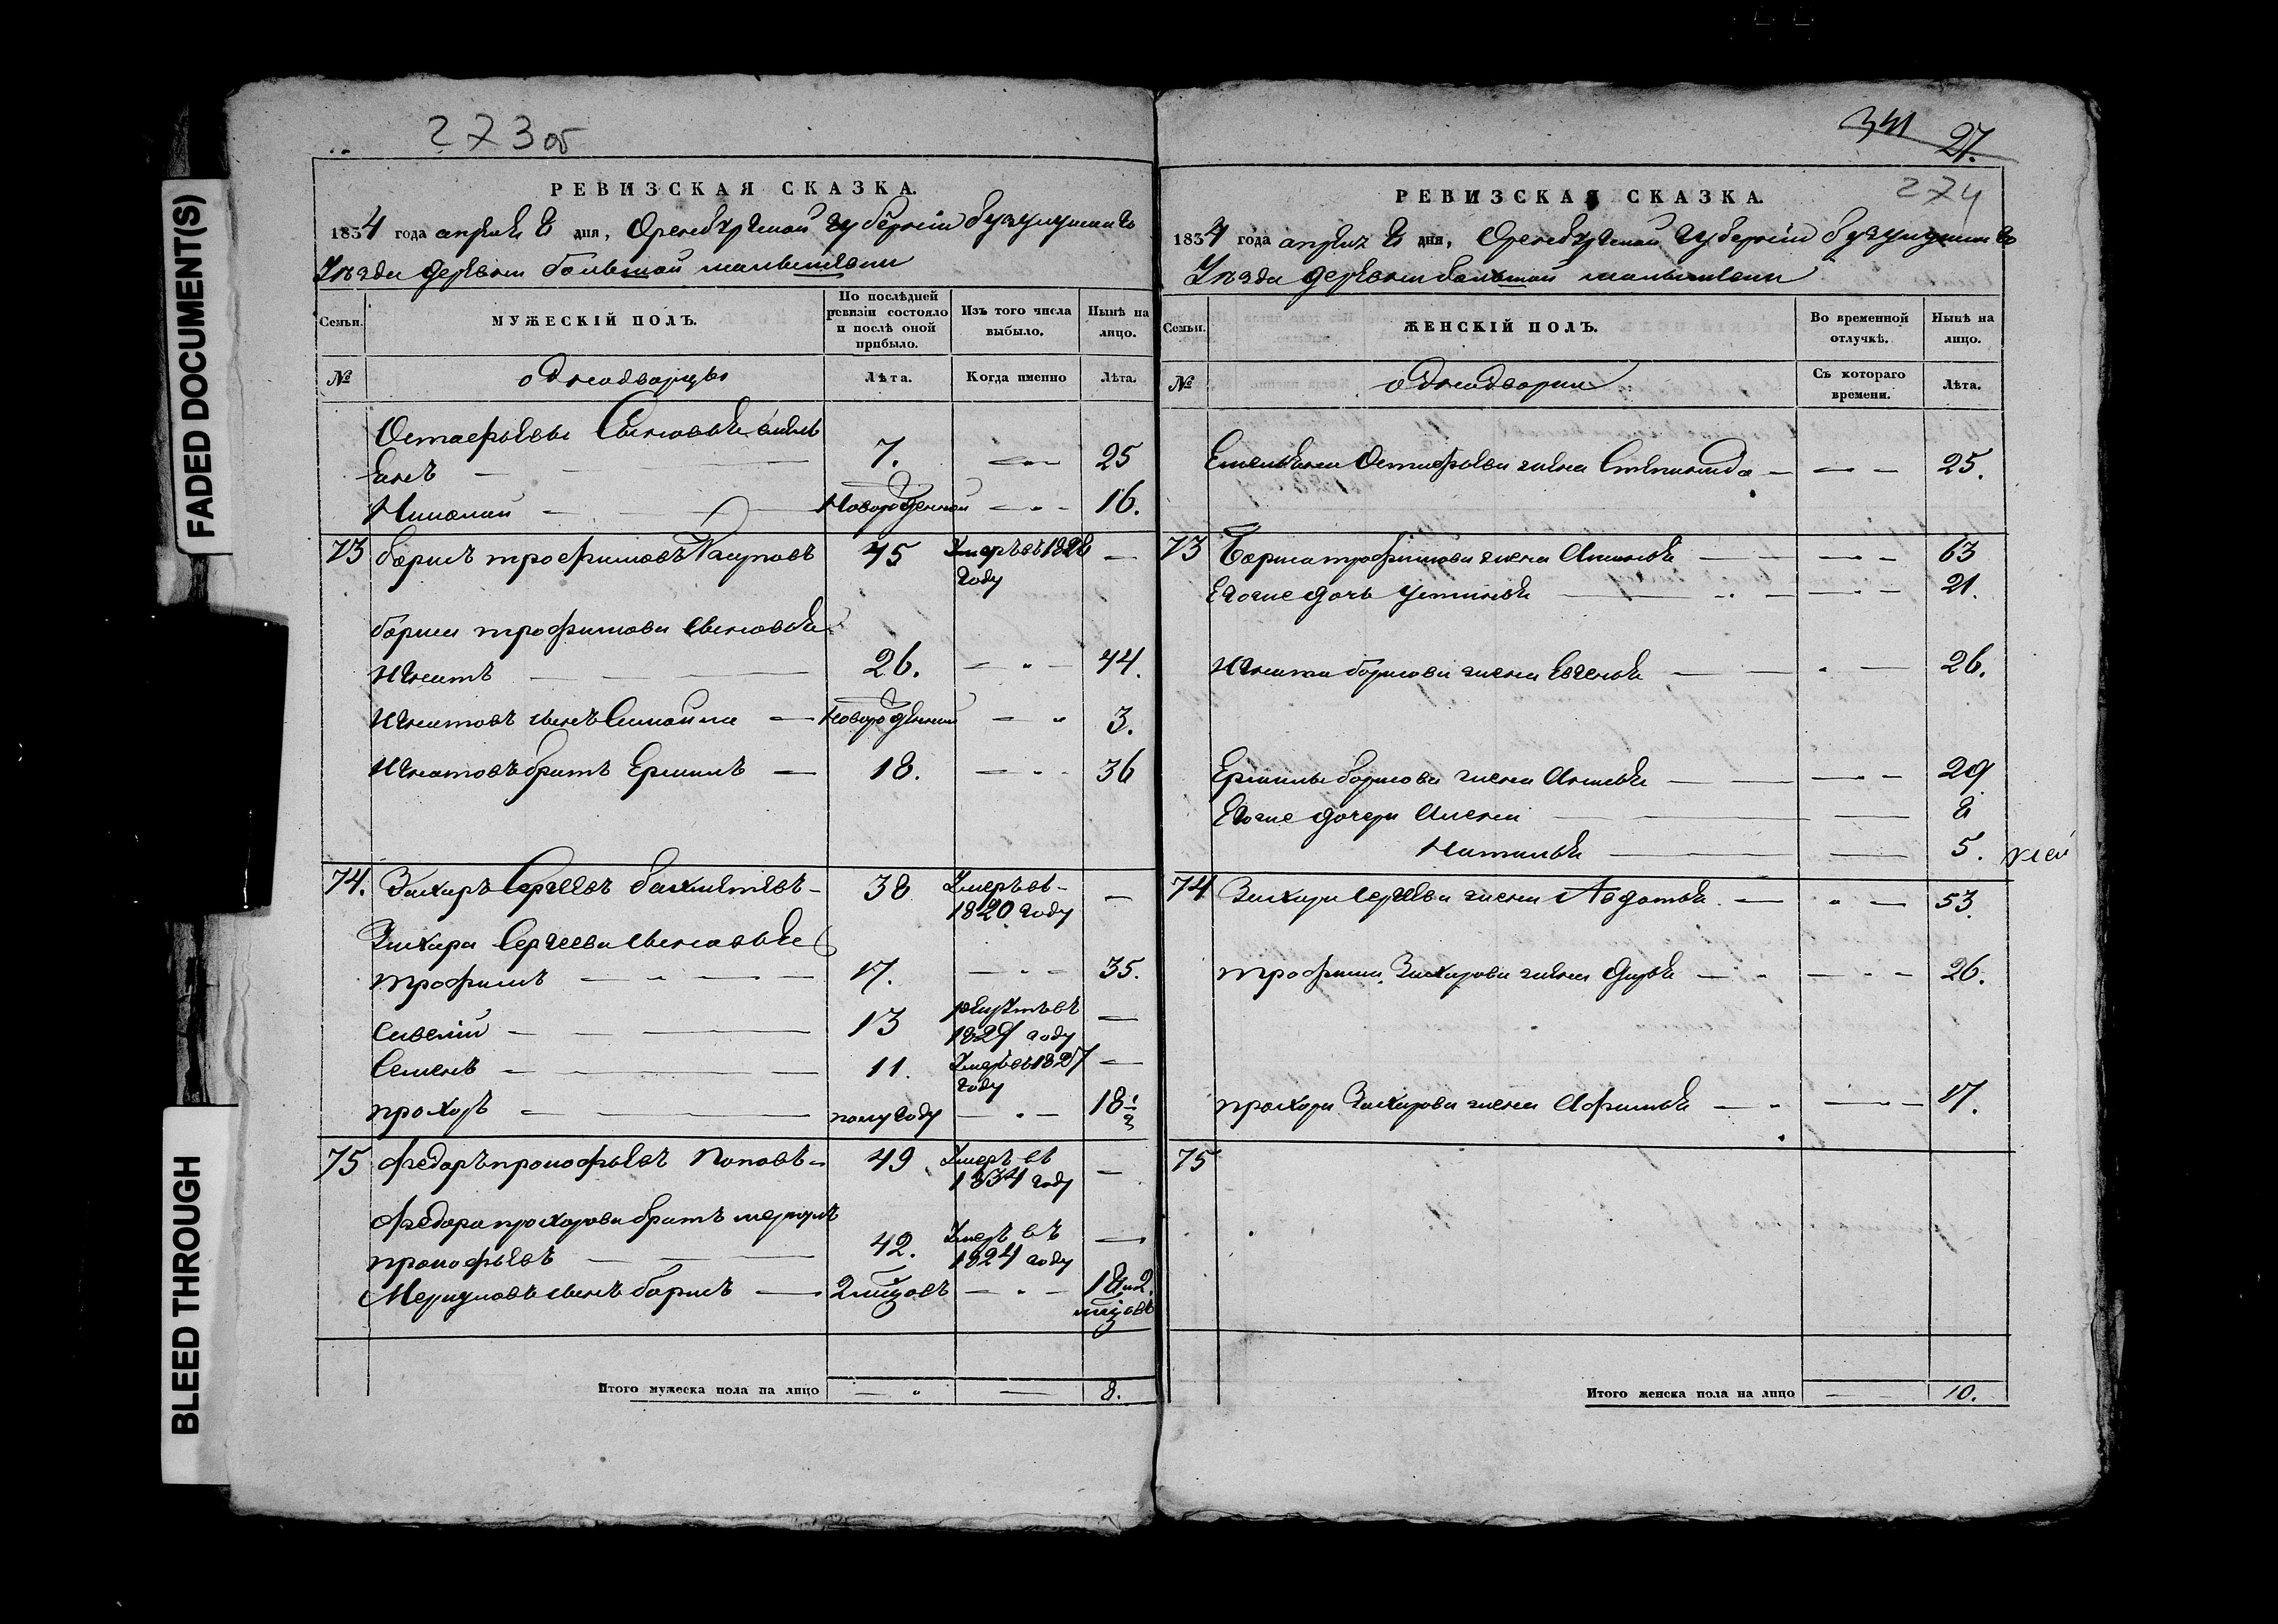 FADED DOCUMENT(S)
BLEED THROUGH
273об
РЕВИЗСКАЯ СКАЗКА.
1834 года апреля 8 дня, Оренбургской губернии бузулукскаго
Уезда деревни большой малышевки
Семьи.
МУЖЕСКІЙ ПОЛЪ.
По послѣдней ревизіи состояло и послѣ оной прибыло.
Изъ того числа выбыло.
Нынѣ на лицо.
№ однодворцы Лѣта. Когда именно Лѣта.
Остафьевы Сыновья
7. 25
Николай новорожденной 16.
73 борисъ трофимовъ 45 Умеръ въ 1828 году —
бориса трофимова сыновья
Игнатъ 26. — " — 44.
Игнатовъ сынъ новорожденный — " 3.
Игнатовъ братъ Ермилъ — 18. — " — 36
74. Захаръ Сергѣевъ 38 Умеръ въ 1820 году —
Захара Сергеева сыновья
трофимъ 17. — " — 35.
савелій 13 рекрутъ въ 1829 году —
Семенъ 11. Умеръ въ 1827 году —
прохоръ полугоду — " — 18 1/2
75 Федоръ прокофьевъ Поповъ 49 Умеръ въ 1834 году —
Федора прохорова братъ меркулъ
прокофьевъ 42. Умеръ въ 1824 году —
Меркуловъ сынъ борисъ — 2 мцовъ — " — 18 и 2. мцовъ
Итого мужеска пола на лицо — " — 8.
341 27.
274
РЕВИЗСКАЯ СКАЗКА.
1834 года апреля 8 дня, Оренбургской губернии бузулукскаго
Уезда деревни большой малышевки
Семьи.
ЖЕНСКІЙ ПОЛЪ.
Во временной отлучкѣ.
Нынѣ на лицо.
№ однодворки Съ котораго времени. Лѣта.
Емельяна Остафьева жена Степанида — 25.
73 Бориса трофимова жена Аксинья — 63
Егоже дочь Устинья — 21.
Игната борисова жена Евгенья — 26.
Ермилы борисова жена Анисья — 29
Егоже дочери Алена — 8
Наталья — 5.
74 Захара сергеева жена Авдотья — " — 53.
трофима Захарова жена Дарья — " — 26.
прохора Захарова жена Афимья — " — 17.
75
Итого женска пола на лицо — 10.